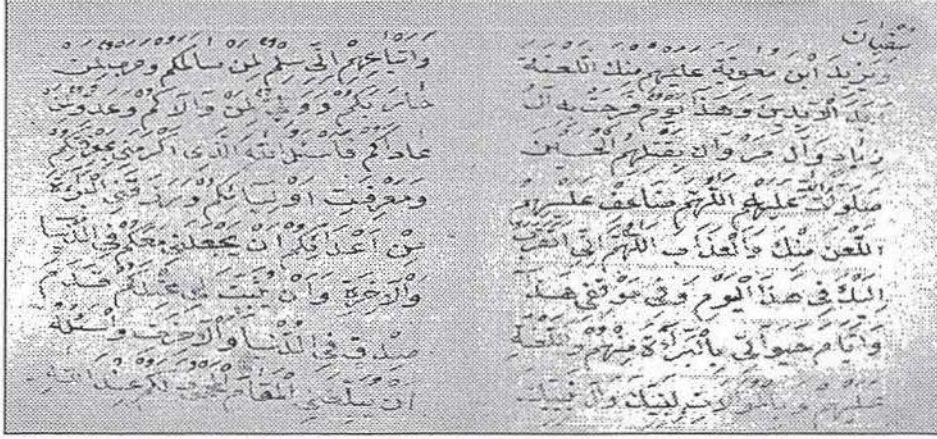 سفيان
ويزيد ابن معوية عليهم منك اللعنة
ابد الآبدين وهذا يوم فرحت به آل
زياد وآل مروان بقتلهم الحسين
صلوات الله عليهم اللهم ضاعف عليهم
اللعن منك والعذاب اللهم اني اتقرب
اليك في هذا اليوم وفي موقفي هذا
وايام حيواتي بالبرآءة منهم واللعنة
عليهم وبالموالات لنبيك وآل نبيك
واتباعهم اني سلم لمن سالمكم وحرب لمن
حاربكم وولي لمن والاكم وعدو لمن
عاداكم فاسئل الله الذي اكرمني بمعرفتكم
ومعرفت اوليائكم ورزقني البرءة
من اعدائكم ان يجعلني معكم في الدنيا
والآخرة وان يثبت لي عندكم قدم
صدق في الدنيا والآخرت واسئله
ان يبلغني المقام المحمود لكم عند الله